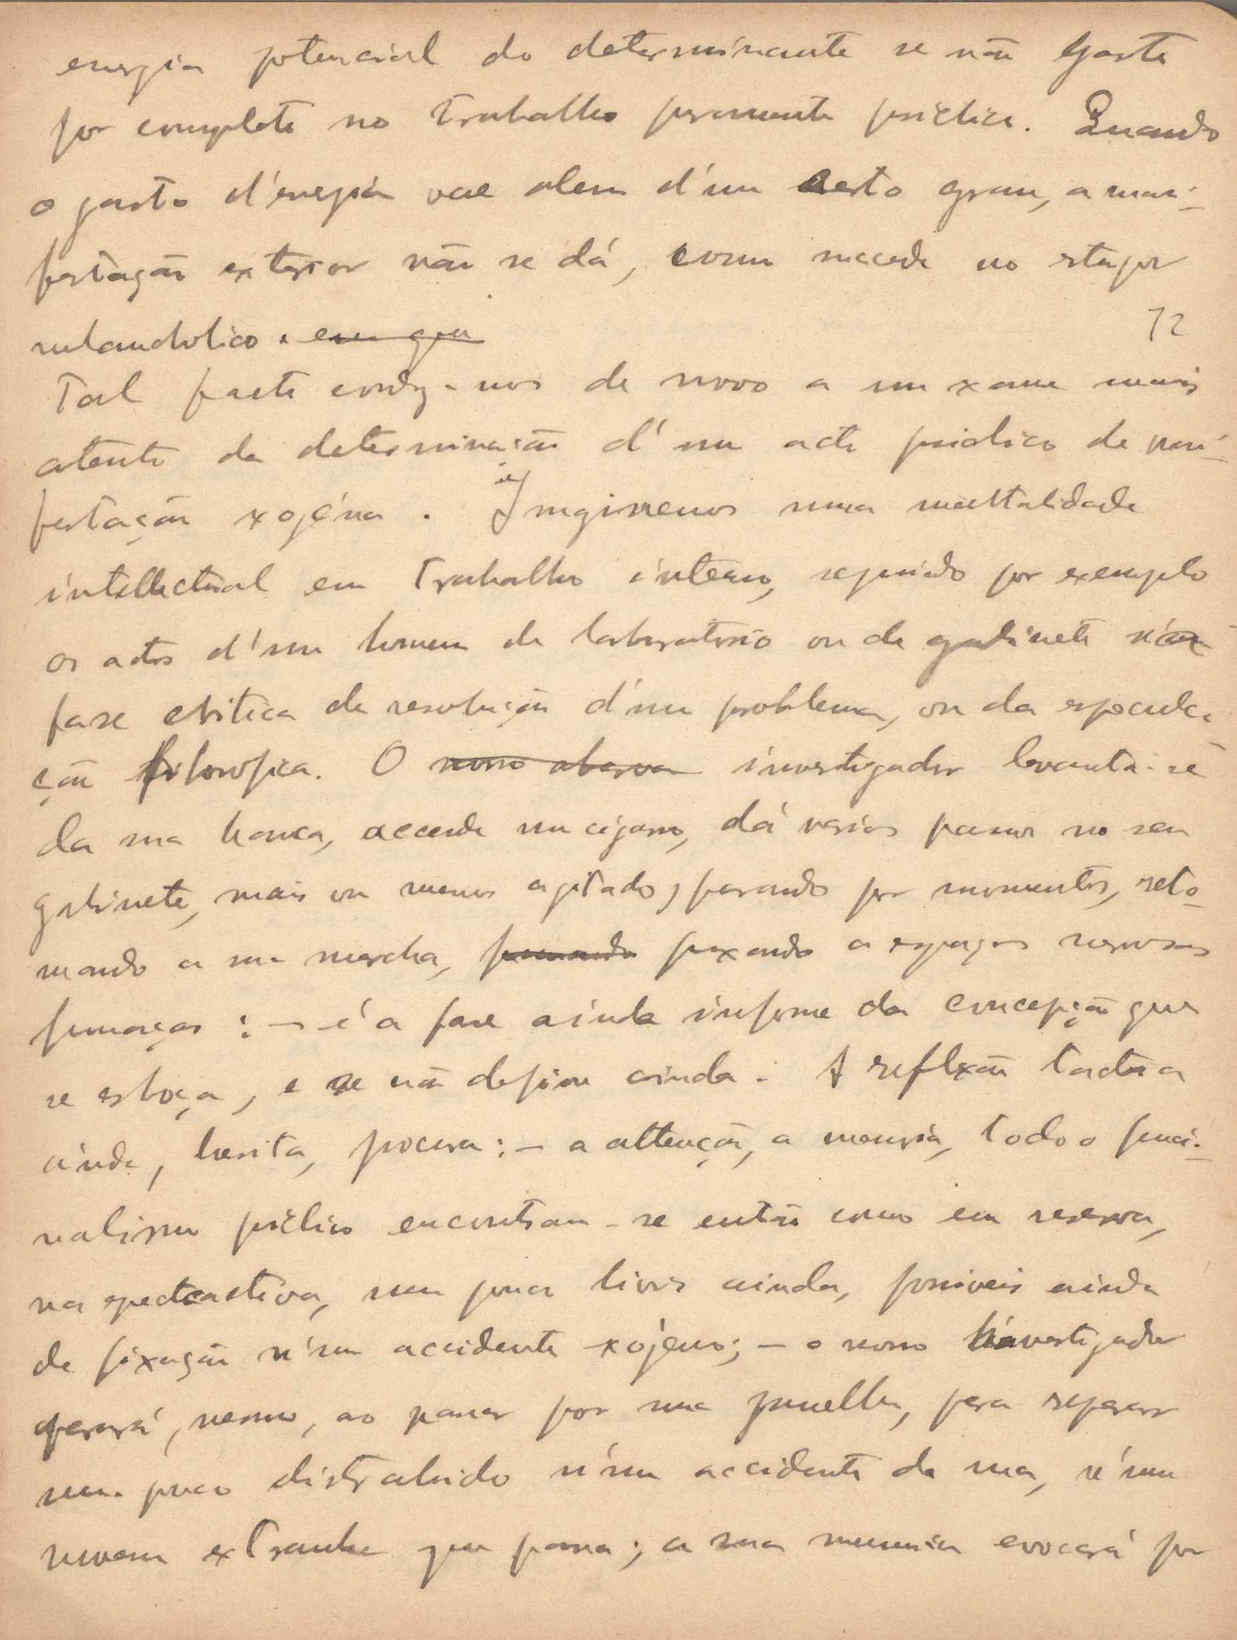 energia potencial do determinante se não gaste
por completo no trabalho puramente psichico. Quando
o gasto d'energia vae alem d'um certo grau, a mani-
festação exterior não se dá, como sucede no stupor
melancholico. em que
72
Tal facto conduz-nos de novo a um exame mais
atento da determinação d'um acto psichico de mani-
festação exogéna. Imaginemos uma mentalidade
intellectual em trabalho interno, seguindo por exemplo
os actos d'um homem de laboratorio ou de gabinete n'uma
fase critica da resolução d'um problema, ou da especula-
ção filosofica. O nosso observa investigador levanta-se
da sua banca, accende um cigarro, dá varios passos no seu
gabinete, mais ou menos agitado, parando por momentos, reto-
mando a sua marcha, fumando puxando a espaços nervosas
fumaças: — é a fase ainda informe da concepção que
se esboça, e se não define ainda. A reflexão tactea
ainda, hesita, procura: — a attenção, a memoria, todo o funcio-
nalismo psichico encontram-se então como em reserva,
na expectactiva, um pouco livres ainda, possiveis ainda
de fixação n'um accidente exogeno; — o nosso investigador
parará, mesmo, ao passar por uma janella, para reparar
um pouco distrahido n'um accidente da rua, n'um
nuvem extranha que passa; a sua memoria evocará por